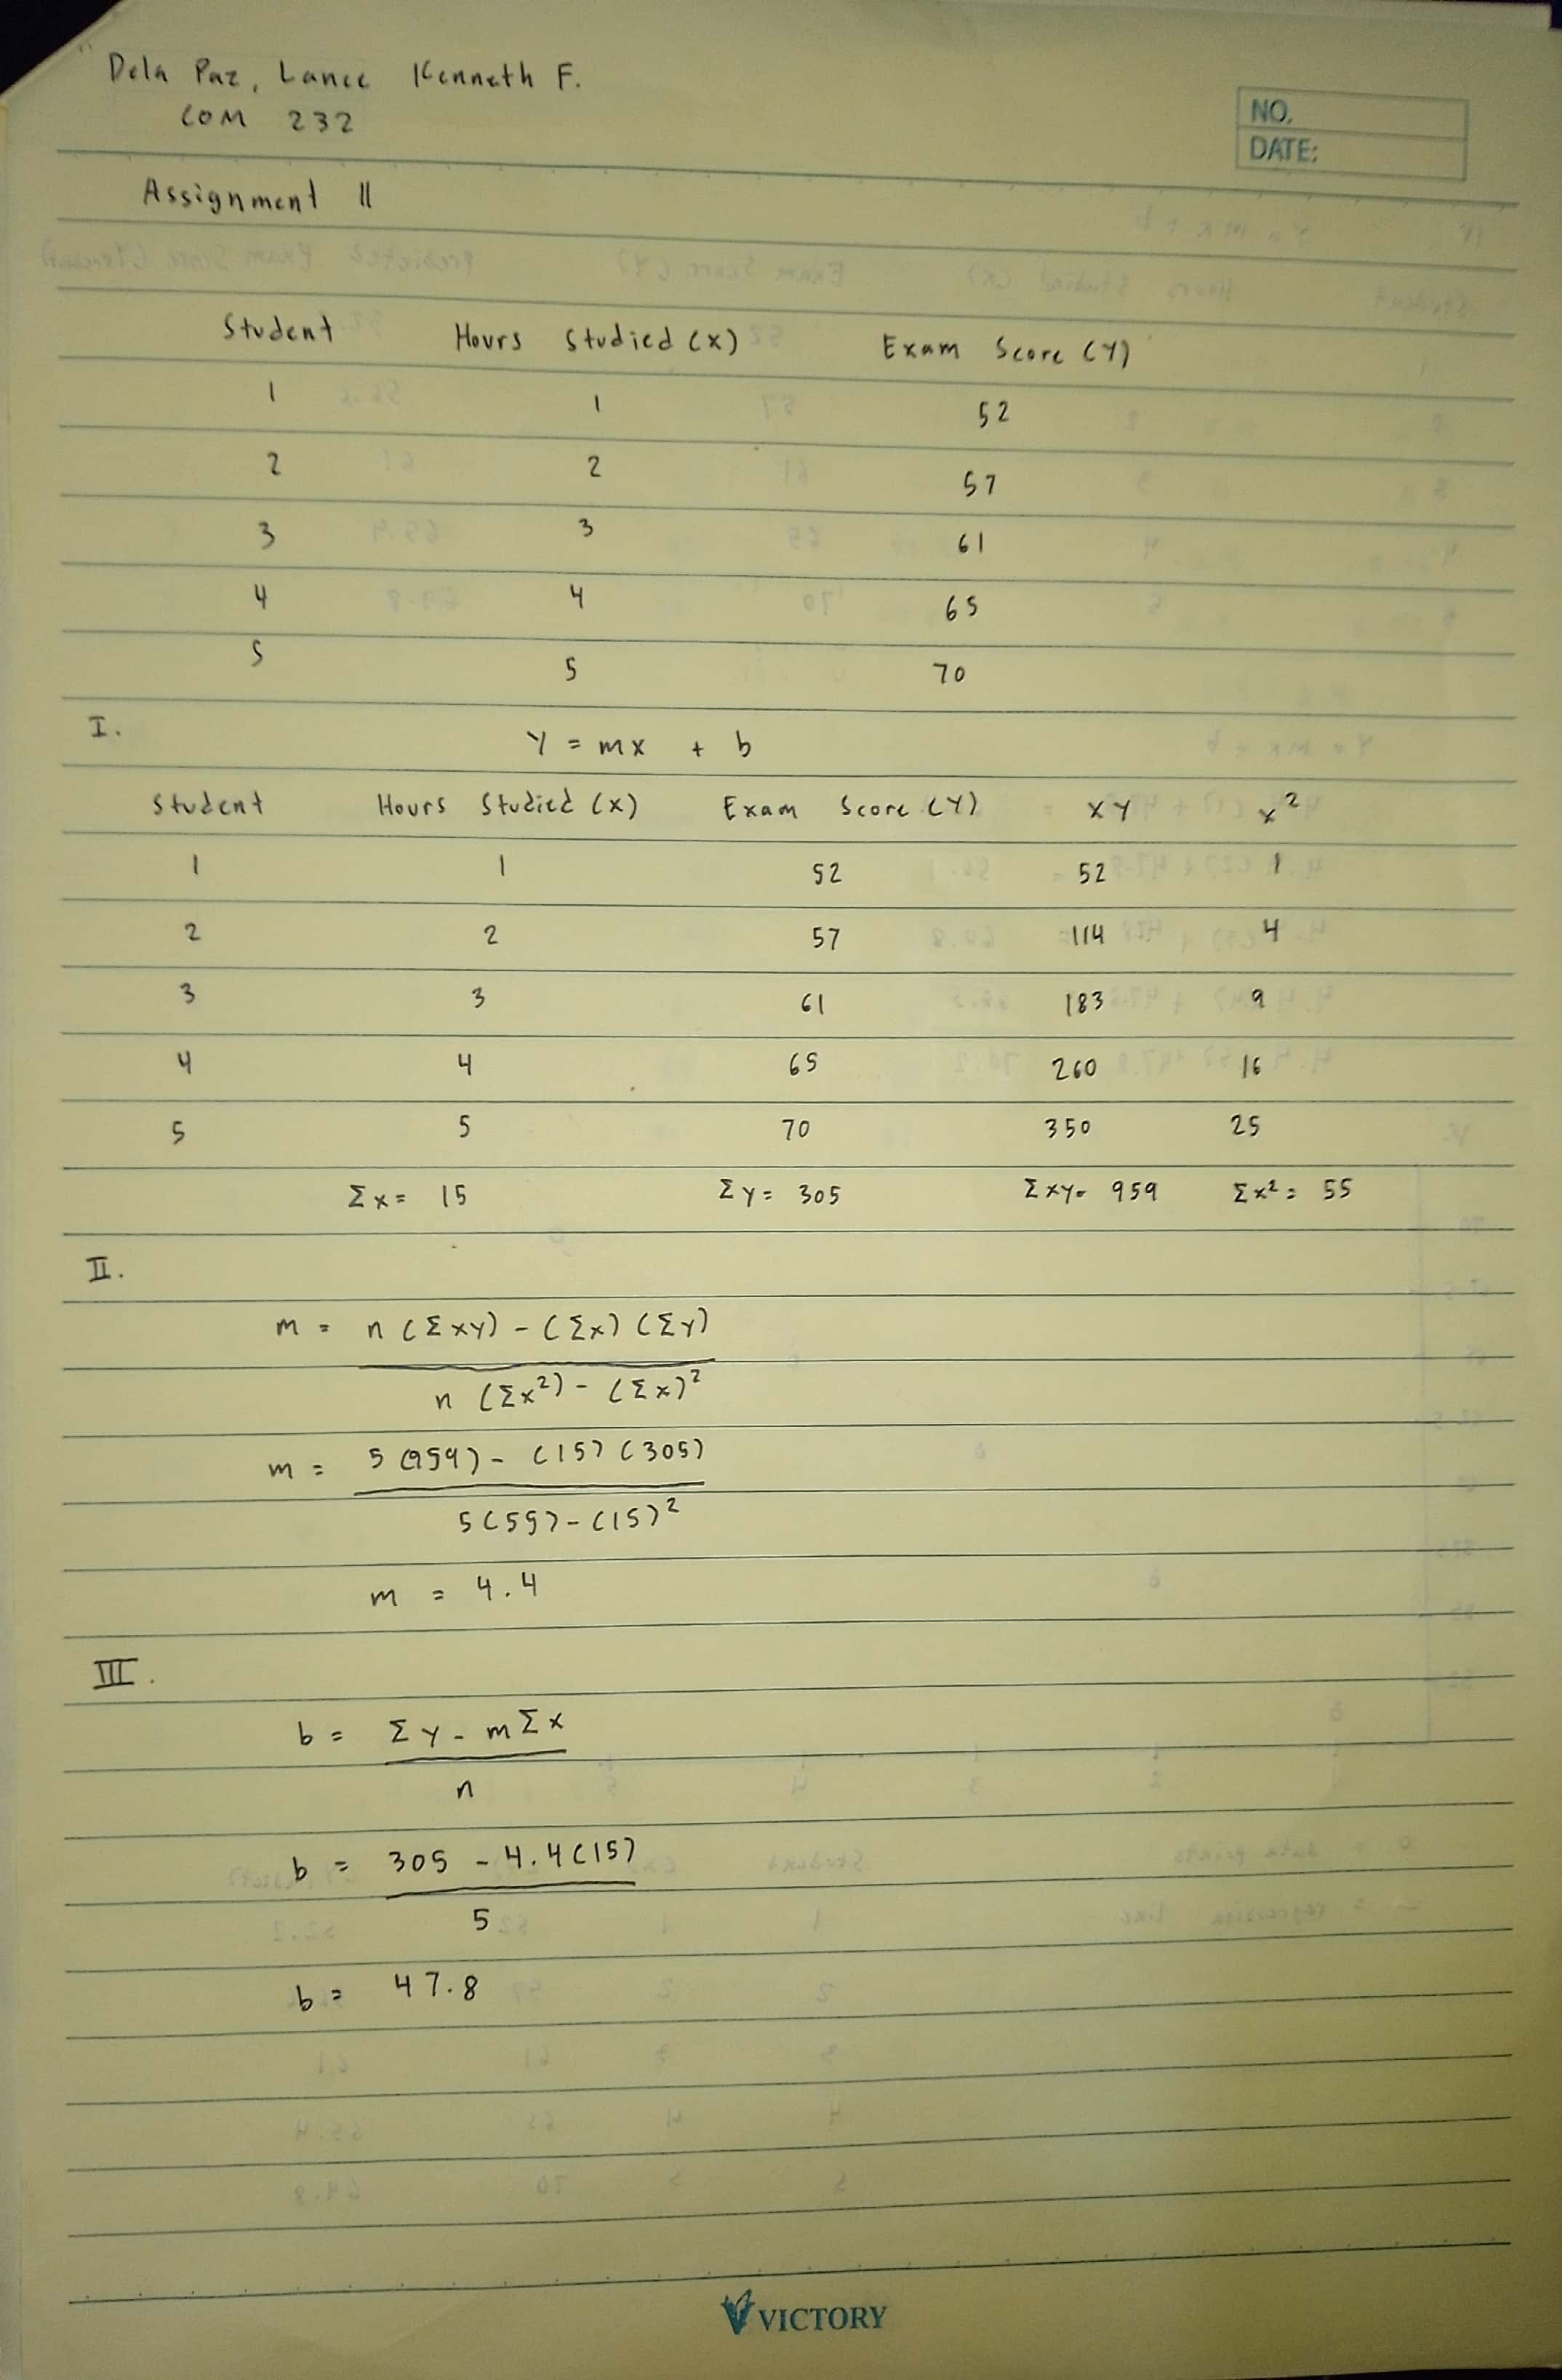 Dela Paz, Lance Kenneth F.
COM 232
NO.
DATE:
Assignment 11
Student Hours Studied (x) Exam Score (Y)
1 1 52
2 2 57
3 3 61
4 4 65
5 5 70
I.
Y = mx + b
Student Hours Studied (x) Exam Score (Y) XY x²
1 1 52 52 1
2 2 57 114 4
3 3 61 183 9
4 4 65 260 16
5 5 70 350 25
Σx = 15 Σy = 305 Σxy = 959 Σx² = 55
II.
m = n (Σxy) - (Σx) (Σy)
n (Σx²) - (Σx)²
m = 5 (959) - (15) (305)
5(55) - (15)²
m = 4.4
III.
b = Σy - mΣx
n
b = 305 - 4.4(15)
5
b = 47.8
VICTORY